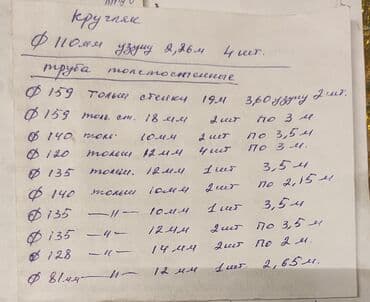 Кругляк
Ф 110мм узуну 2,26м 4 шт.
труба толстостенные
Ф 159 толщ стенки 19м 3,60 узуну 2 шт.
Ф 159 тол. ст. 18 мм 2 шт по 3 м
Ф 140 тол. 10мм 2 шт по 3,5 м
Ф 120 толщ 12мм 4 шт по 3 м.
Ф 135 толщ. 12мм 1 шт 3,5 м
Ф 140 толщ 10мм 2 шт по 2,15 м
Ф 135 —"— 10мм 1 шт 3,5 м
Ф 135 —"— 12мм 2 шт по 3,5 м
Ф 128 —"— 14 мм 2 шт по 2 м.
Ф 81мм —"— 12 мм 1 шт 2,65 м.